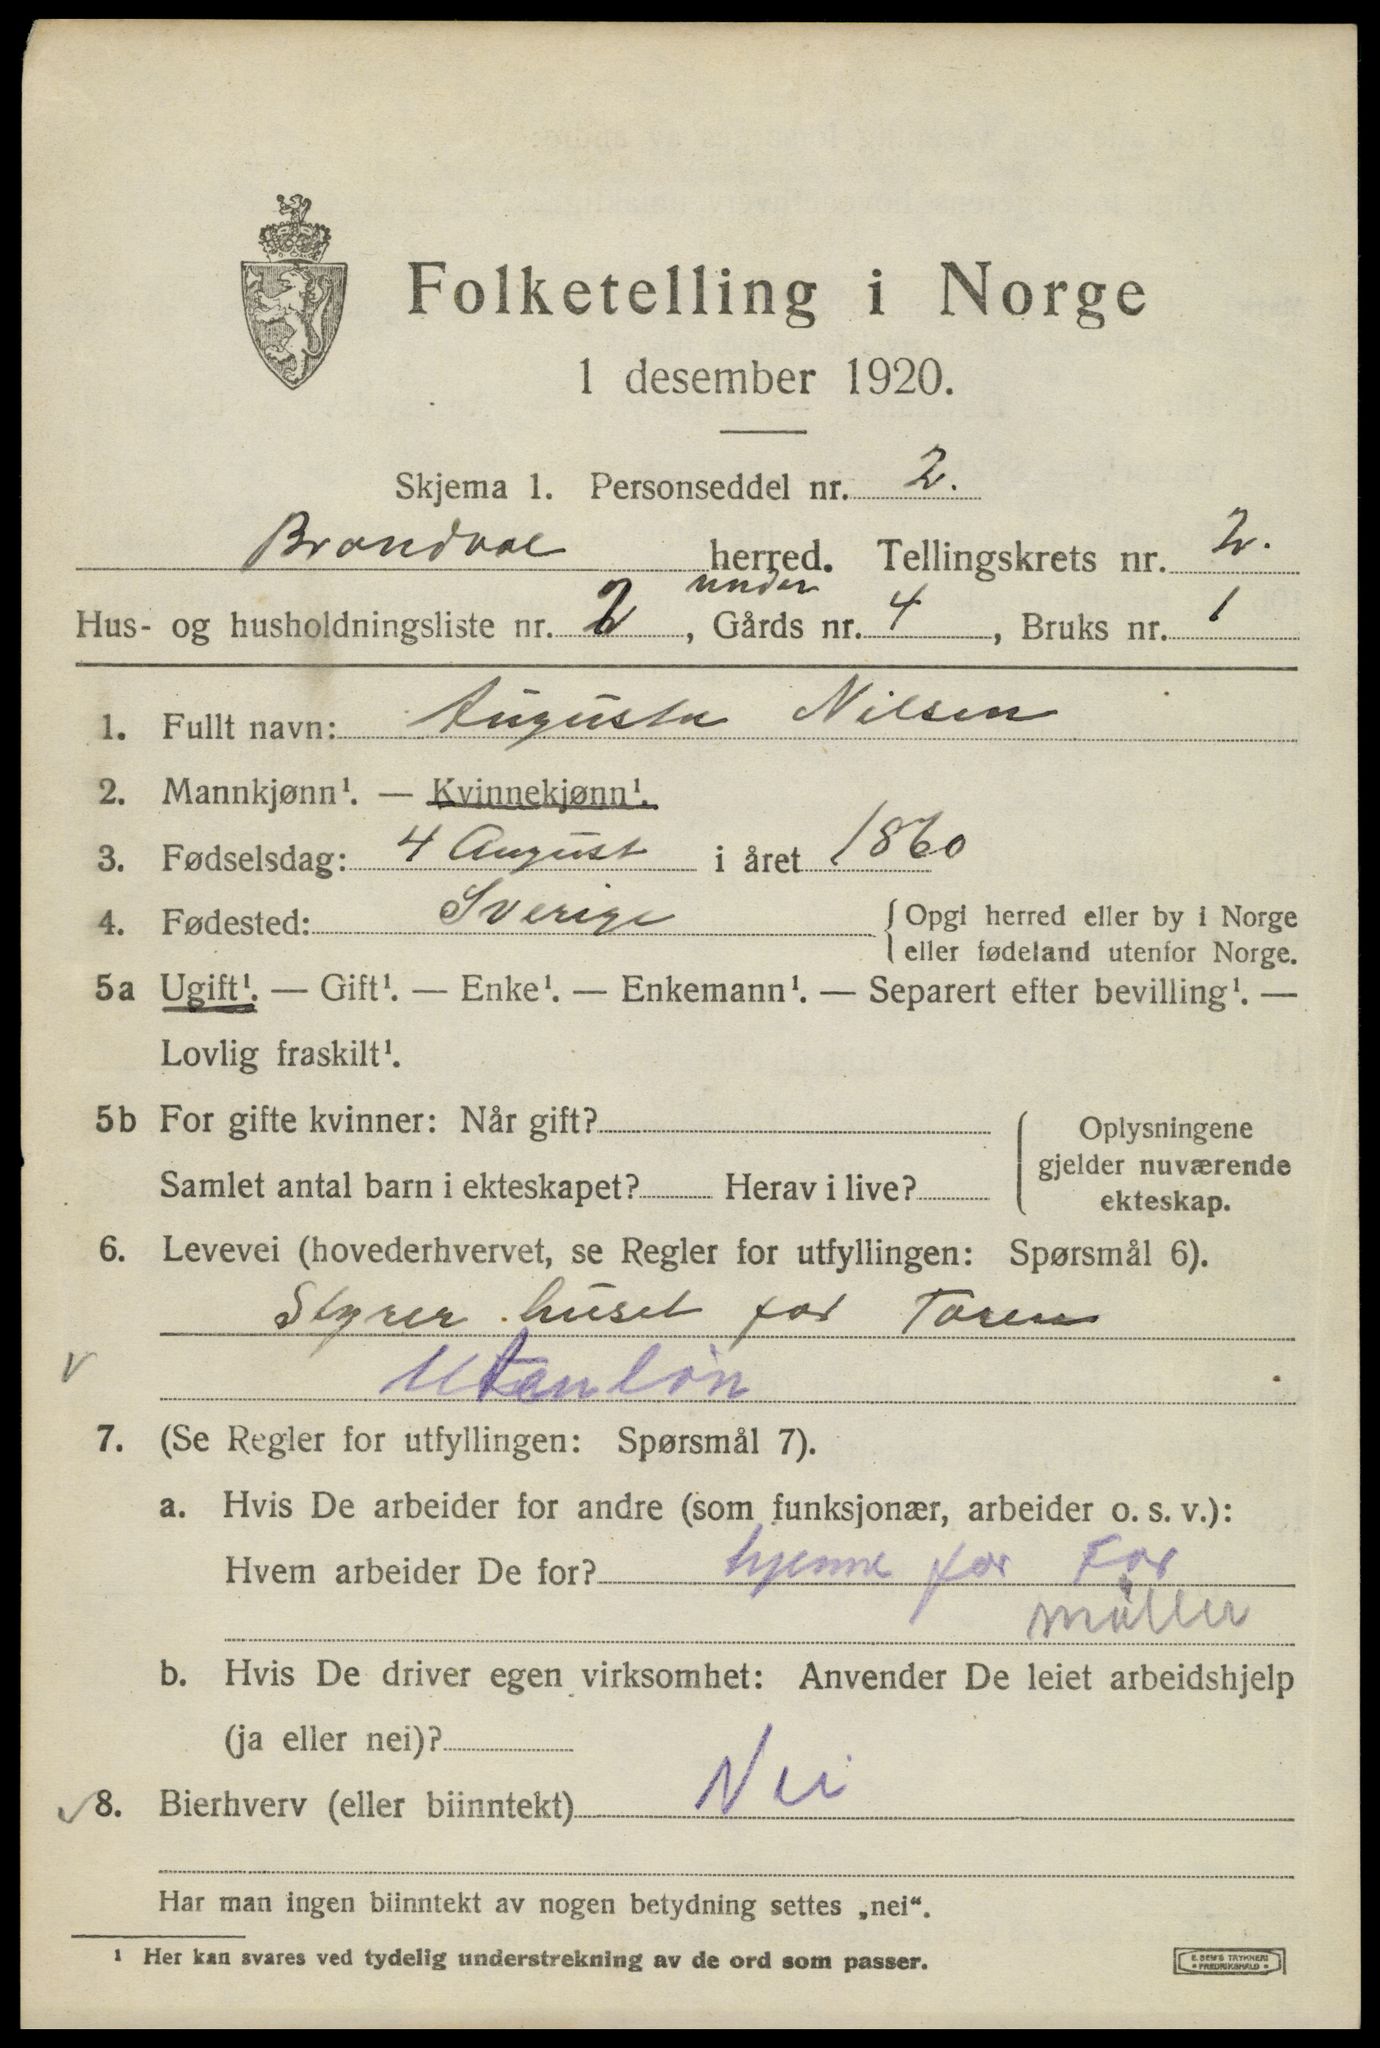 Folketelling i Norge
1 desember 1920.
Skjema 1. Personseddel nr. 2.
Brandval herred. Tellingskrets nr. 2.
under
Hus- og husholdningsliste nr. 2, Gårds nr. 4, Bruks nr. 1
1. Fullt navn: Augusta Nilsen
2. Mannkjønn¹. — Kvinnekjønn¹.
3. Fødselsdag: 4 August i året 1860
4. Fødested: Sverige { Opgi herred eller by i Norge
eller fødeland utenfor Norge.
5a Ugift¹. — Gift¹. — Enke¹. — Enkemann¹. — Separert efter bevilling¹. —
Lovlig fraskilt¹.
5b For gifte kvinner: Når gift?
Samlet antal barn i ekteskapet? Herav i live?
Oplysningene
gjelder nuværende
ekteskap.
6. Levevei (hovederhvervet, se Regler for utfyllingen: Spørsmål 6).
Styrer huset for Faren
Utenlön
7. (Se Regler for utfyllingen: Spørsmål 7).
a. Hvis De arbeider for andre (som funksjonær, arbeider o. s. v.):
Hvem arbeider De for? hjemme for Far
möller
b. Hvis De driver egen virksomhet: Anvender De leiet arbeidshjelp
(ja eller nei)?
8. Bierhverv (eller biinntekt) Nei
Har man ingen biinntekt av nogen betydning settes „nei“.
¹ Her kan svares ved tydelig understrekning av de ord som passer.
E. SEM'S TRYKKERI
FREDRIKSHALD